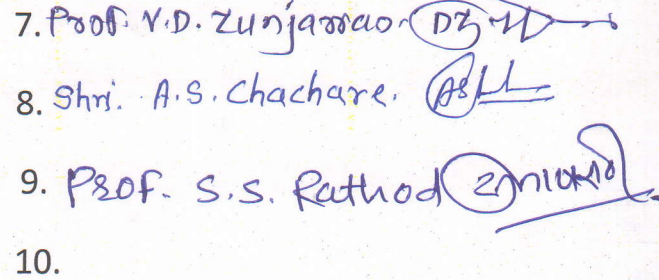 7. Prof. V.D. Zunjarrao
8. Shri. A.S. Chachare.
9. Prof. S.S. Rathod
10.